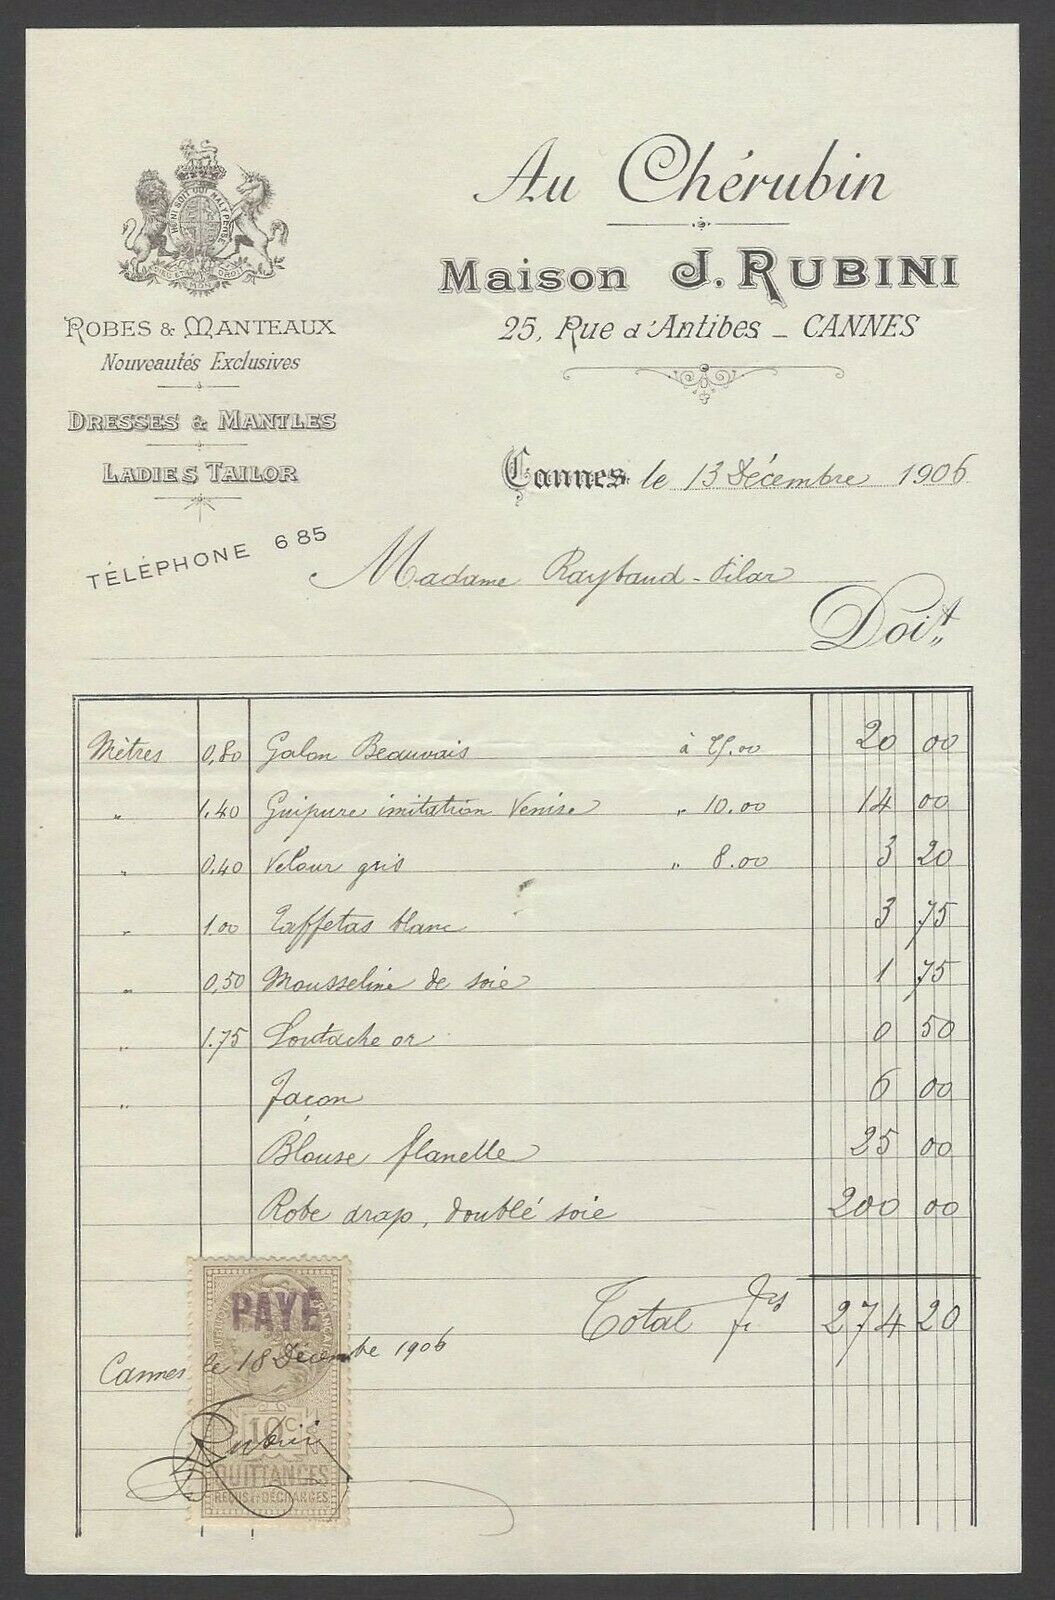 HONI SOIT QUI MAL Y PENSE
DIEU ET MON DROIT
Au Chérubin
Maison J. RUBINI
25, Rue d'Antibes _ CANNES
ROBES & MANTEAUX
Nouveautés Exclusives
DRESSES & MANTLES
LADIES TAILOR
TÉLÉPHONE 6 85
Cannes le 13 Décembre 1906
Madame Raybaud-Pilar
Doit
Mètres 0,80 Galon Beauvais à 25.00 20 00
" 1.40 Guipure imitation Venise " 10.00 14 00
" 0,40 Velour gris " 8.00 3 20
" 1.00 Taffetas blanc 3 75
" 0,50 Mousseline de soie 1 75
" 1.75 Soutache or 0 50
" Façon 6 00
Blouse flanelle 25 00
Robe drap, doublé soie 200 00
Total frs 274 20
PAYÉ
Cannes le 18 Décembre 1906
10c
Rubini
QUITTANCES
REÇUS & DÉCHARGES